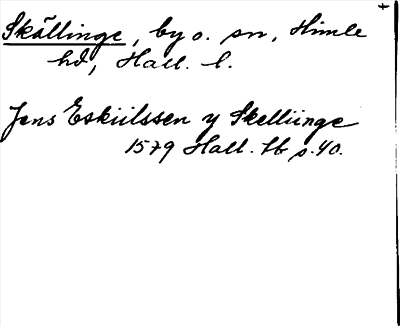 Skällinge, by o. sn, Himle
hd, Hall. l.
Jens Eskiilssen y Skelliinge
1579 Hall. tb s. 40.